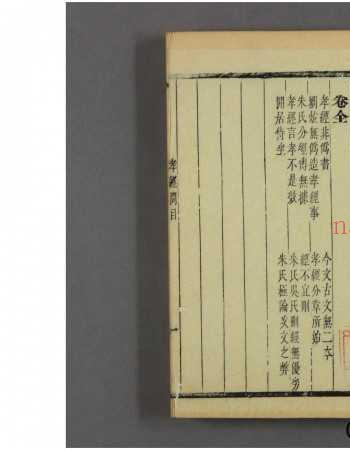 卷全
孝經非僞書
今文古文無二本
劉炫無僞造孝經事
孝經分章所始
朱氏分經傳無據
經不宜刪
孝經言孝不是效
朱氏吳氏刪經無優劣
閒居侍坐
朱氏極論改文之弊
孝經問目
一